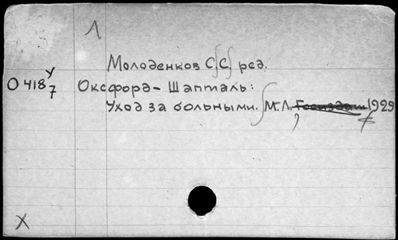 Л
Молоденков С. С. ред.
О 418 У/7 Оксфорд - Шапталь:
Уход за больными. М.Л. Госиздат 1929
X